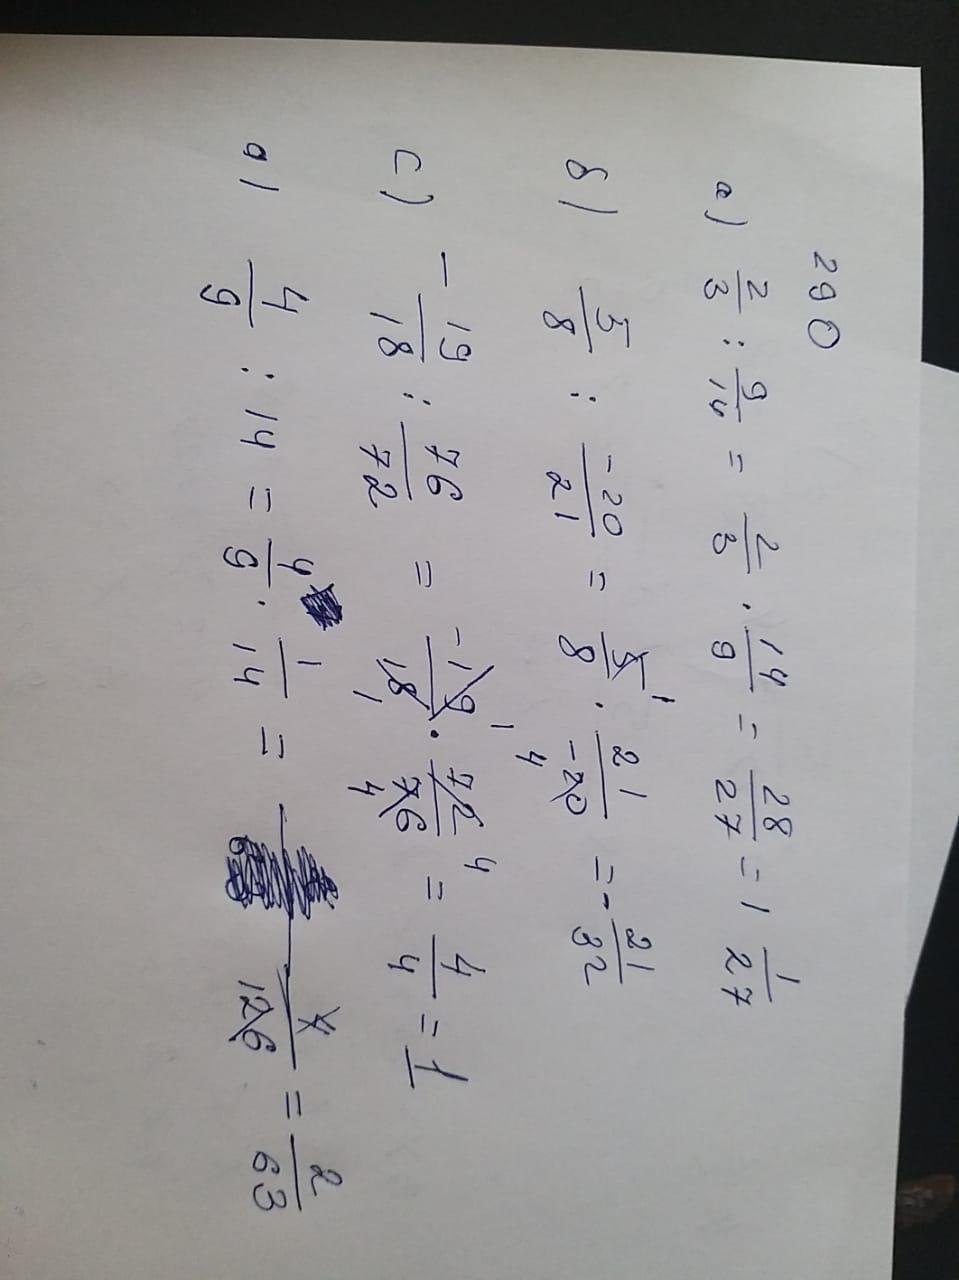 290
a) 2/3 : 9/14 = 2/3 · 14/9 = 28/27 = 1 1/27
б) 5/8 : -20/21 = 5/8 1 · 21/-20 4 = - 21/32
c) - 19/18 : 76/72 = -19/18 1 1 · 72/76 4 4 = 4/4 = 1
g) 4/9 : 14 = 4/9 · 1/14 = 4/126 = 2/63